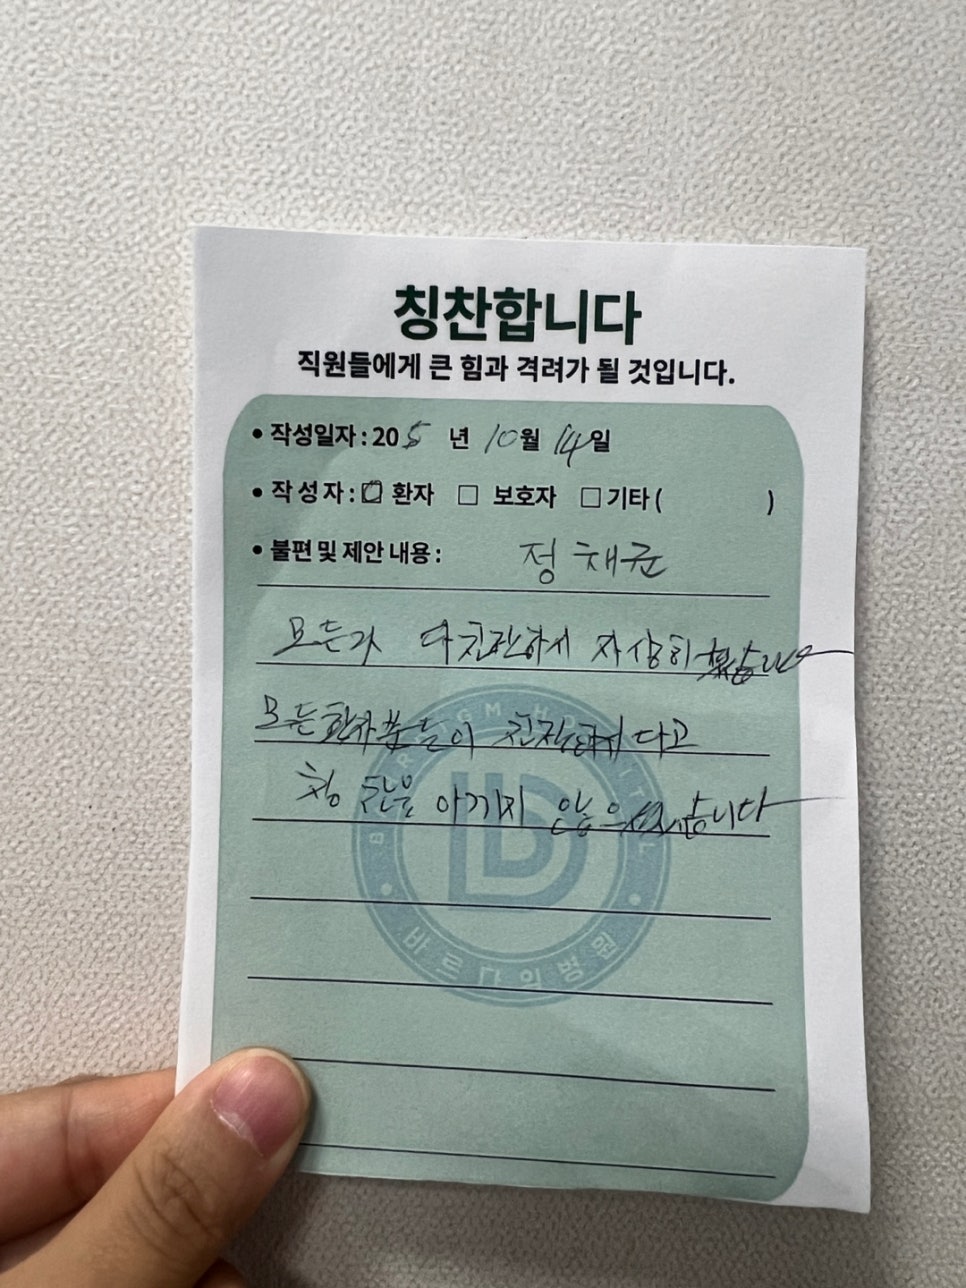 칭찬합니다
직원들에게 큰 힘과 격려가 될 것입니다.
• 작성일자 : 205 년 10월 14일
• 작 성 자 : ☑ 환자 □ 보호자 □ 기타 ( )
• 불편 및 제안 내용 : 정채균
모든가 다 친절하시 자상히
모든 환자분들이 친절하게 다고
칭찬을 아끼지 않으셨습니다
바르나의병원